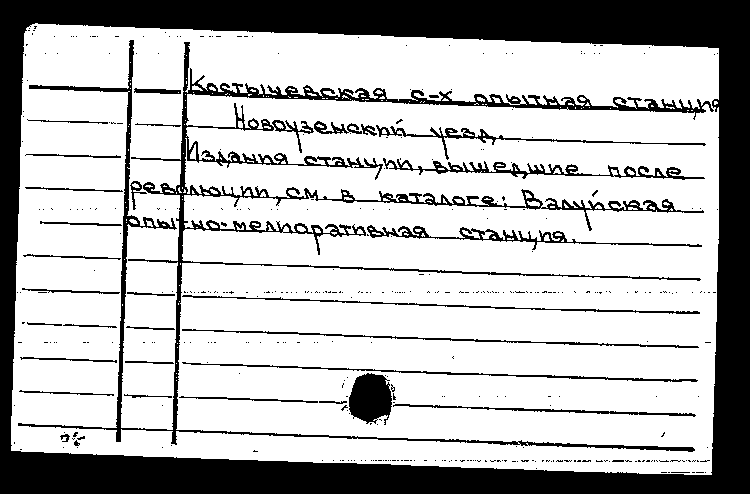 Костычевская с-х опытная станция
Новоузенский уезд.
Издания станции, вышедшие после
революции, см. в каталоге: Валуйская
опытно-мелиоративная станция.